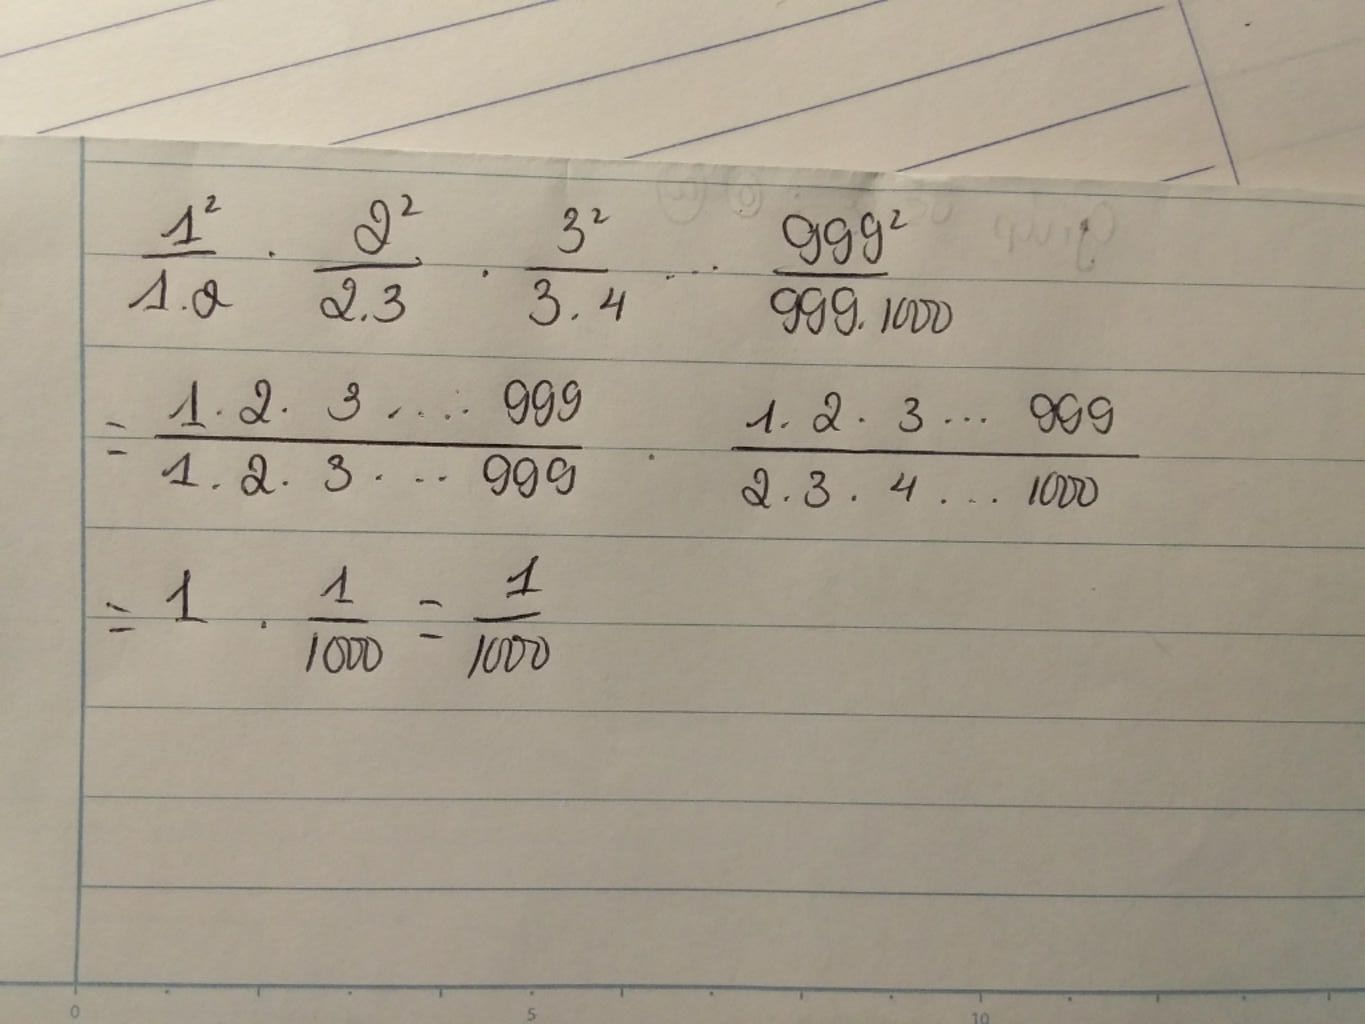 1² / 1.2 . 2² / 2.3 . 3² / 3.4 . ... 999² / 999.1000
= 1.2.3.... 999 / 1.2.3.... 999 . 1.2.3... 999 / 2.3.4... 1000
= 1 . 1 / 1000 = 1 / 1000
0 5 10